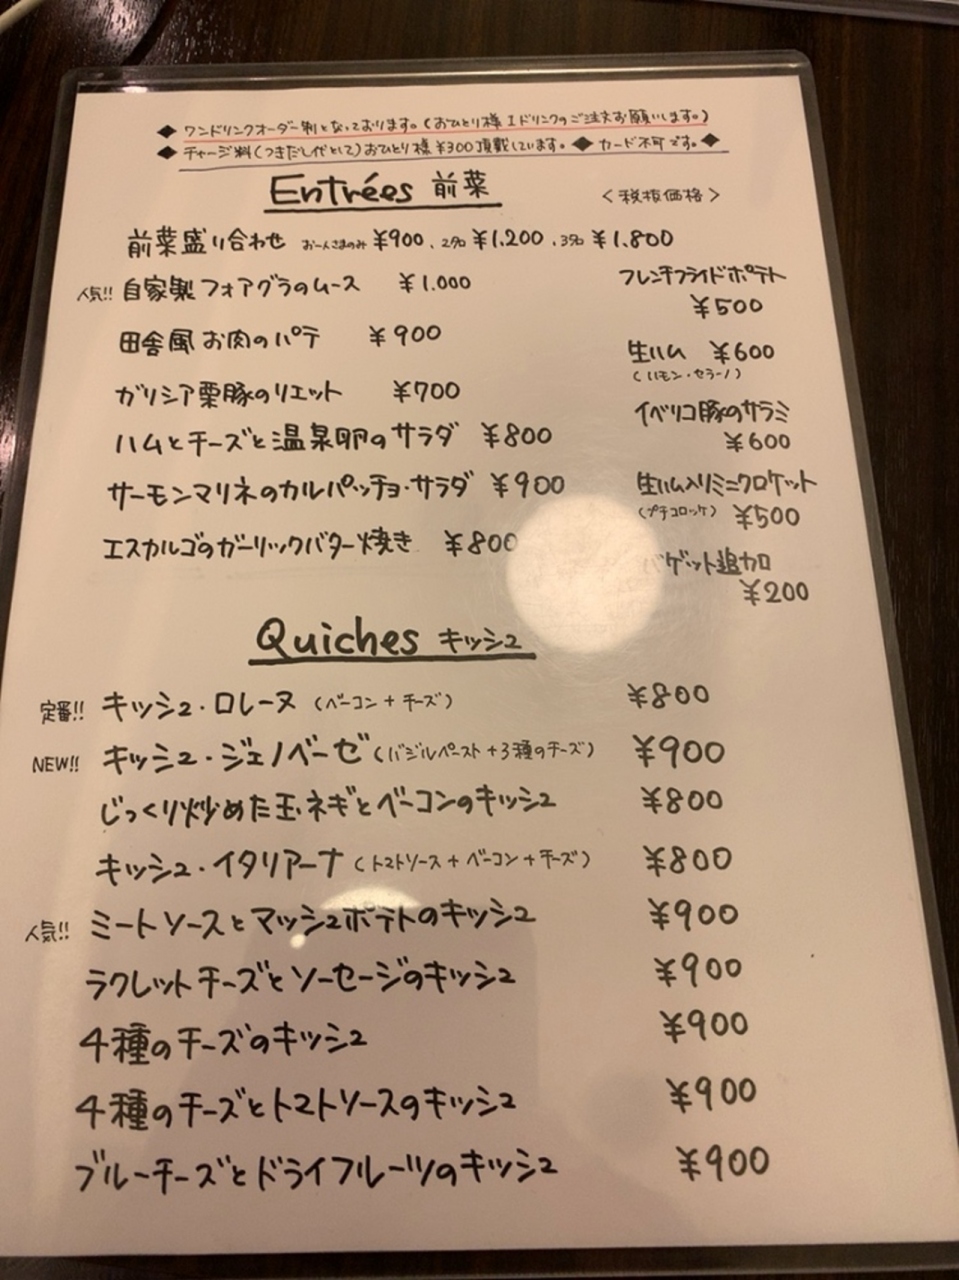 ◆ ワンドリンクオーダー制となっております。(おひとり様1ドリンクのご注文お願いします。)
◆ チャージ料(つきだし代として)おひとり様¥300頂戴しています。◆ カード不可です。◆
Entrées 前菜 <税抜価格>
前菜盛り合わせ お一人さまのみ ¥900、2名 ¥1,200、3名 ¥1,800
人気!! 自家製フォアグラのムース ¥1,000
田舎風お肉のパテ ¥900
ガリシア栗豚のリエット ¥700
ハムとチーズと温泉卵のサラダ ¥800
サーモンマリネのカルパッチョ・サラダ ¥900
エスカルゴのガーリックバター焼き ¥800
フレンチフライドポテト
¥500
生ハム ¥600
(ハモン・セラーノ)
イベリコ豚のサラミ
¥600
生ハム入りミニクロケット
(プチコロッケ) ¥500
バゲット追加
¥200
Quiches キッシュ
定番!! キッシュ・ロレーヌ (ベーコン+チーズ) ¥800
NEW!! キッシュ・ジェノベーゼ (バジルペースト+3種のチーズ) ¥900
じっくり炒めた玉ネギとベーコンのキッシュ ¥800
キッシュ・イタリアーナ (トマトソース+ベーコン+チーズ) ¥800
人気!! ミートソースとマッシュポテトのキッシュ ¥900
ラクレットチーズとソーセージのキッシュ ¥900
4種のチーズのキッシュ ¥900
4種のチーズとトマトソースのキッシュ ¥900
ブルーチーズとドライフルーツのキッシュ ¥900